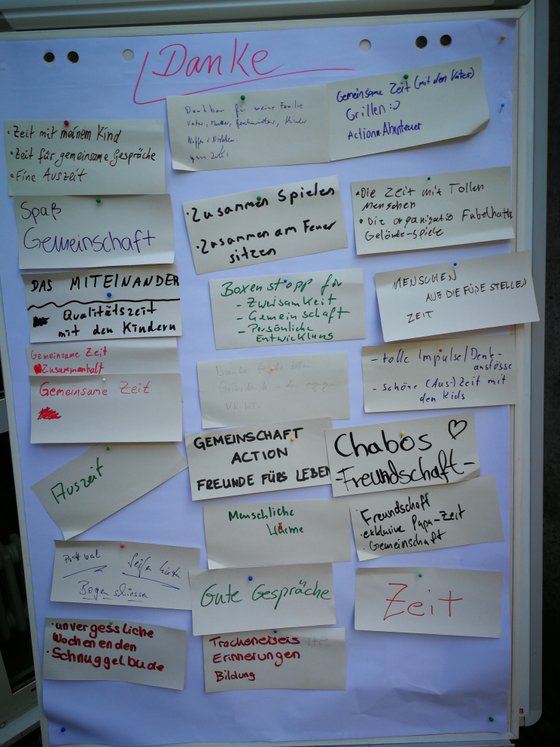 Danke
Dankbar für meine Familie
Gemeinsame Zeit (mit den Vater)
Grillen :-)
Action + Abenteuer
• Zeit mit meinem Kind
• Zeit für gemeinsame Gespräche
• Eine Auszeit
Spaß
Gemeinschaft
• Zusammen Spielen
• Zusammen am Feuer
sitzen
• Die Zeit mit Tollen
Menschen
• Die organisatio Fabelhafte
Gelände-spiele
DAS MITEINANDER
Qualitätszeit
mit den Kindern
Boxenstopp für
- Zweisamkeit
- Gemeinschaft
- Persönliche
Entwicklung
MENSCHEN
AUF DIE FÜßE STELLEN
ZEIT
Gemeinsame Zeit
Zusammenhalt
Gemeinsame Zeit
- tolle Impulse/Denk-
anstösse
- schöne (Aus-)Zeit mit
den Kids
GEMEINSCHAFT
ACTION
FREUNDE FÜRS LEBEN
Chabos ♡
- Freundschaft -
Auszeit
Menschliche
Wärme
Freundschaft
• exklusive Papa-Zeit
• Gemeinschaft
Bogenschiessen
Gute Gespräche
Zeit
• unvergessliche
Wochenenden
• Schnuggelbude
Trockeneiseis
Erinnerungen
Bildung